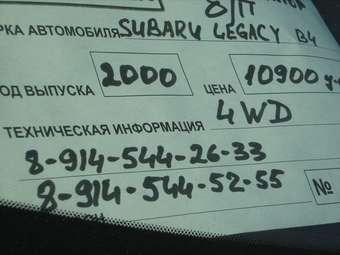 Б/П
РКА АВТОМОБИЛЯ SUBARU LEGACY B4
ОД ВЫПУСКА 2000 ЦЕНА 10900 у.
ТЕХНИЧЕСКАЯ ИНФОРМАЦИЯ 4WD
8-914-544-26-33
8-914-544-52-55
№